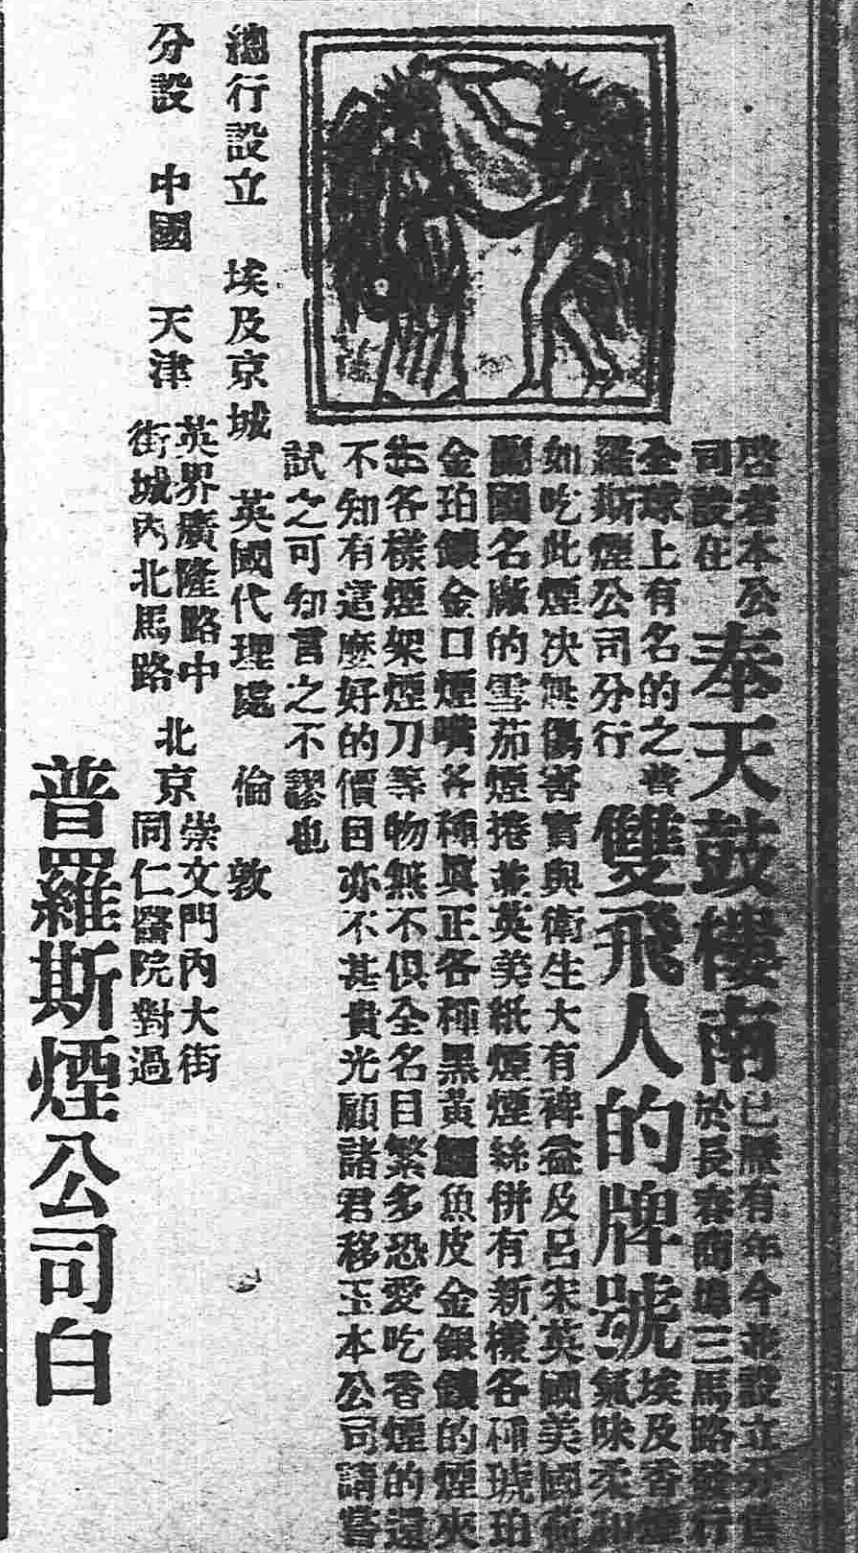 啓者本公
司設在
奉天鼓樓南
已歷有年今並設立分售
於長春商埠三馬路發行
全球上有名的之普
羅斯煙公司分行
雙飛人的牌號
埃及香煙
氣味柔和
如吃此煙决無傷害實與衛生大有裨益及呂宋英國美國荷
蘭國名廠的雪茄煙捲並英美紙煙煙絲併有新樣各種琥珀
金珀鑲金口煙嘴各種真正各種黑黃鱷魚皮金銀鑲的煙夾
各樣煙架煙刀等物無不俱全名目繁多恐愛吃香煙的還
不知有這麽好的價目亦不甚貴光顧諸君移玉本公司請嘗
試之可知言之不謬也
總行設立 埃及京城 英國代理處 倫敦
分設 中國 天津
英界廣隆路中
街城內北馬路
北京
崇文門內大街
同仁醫院對過
普羅斯煙公司白